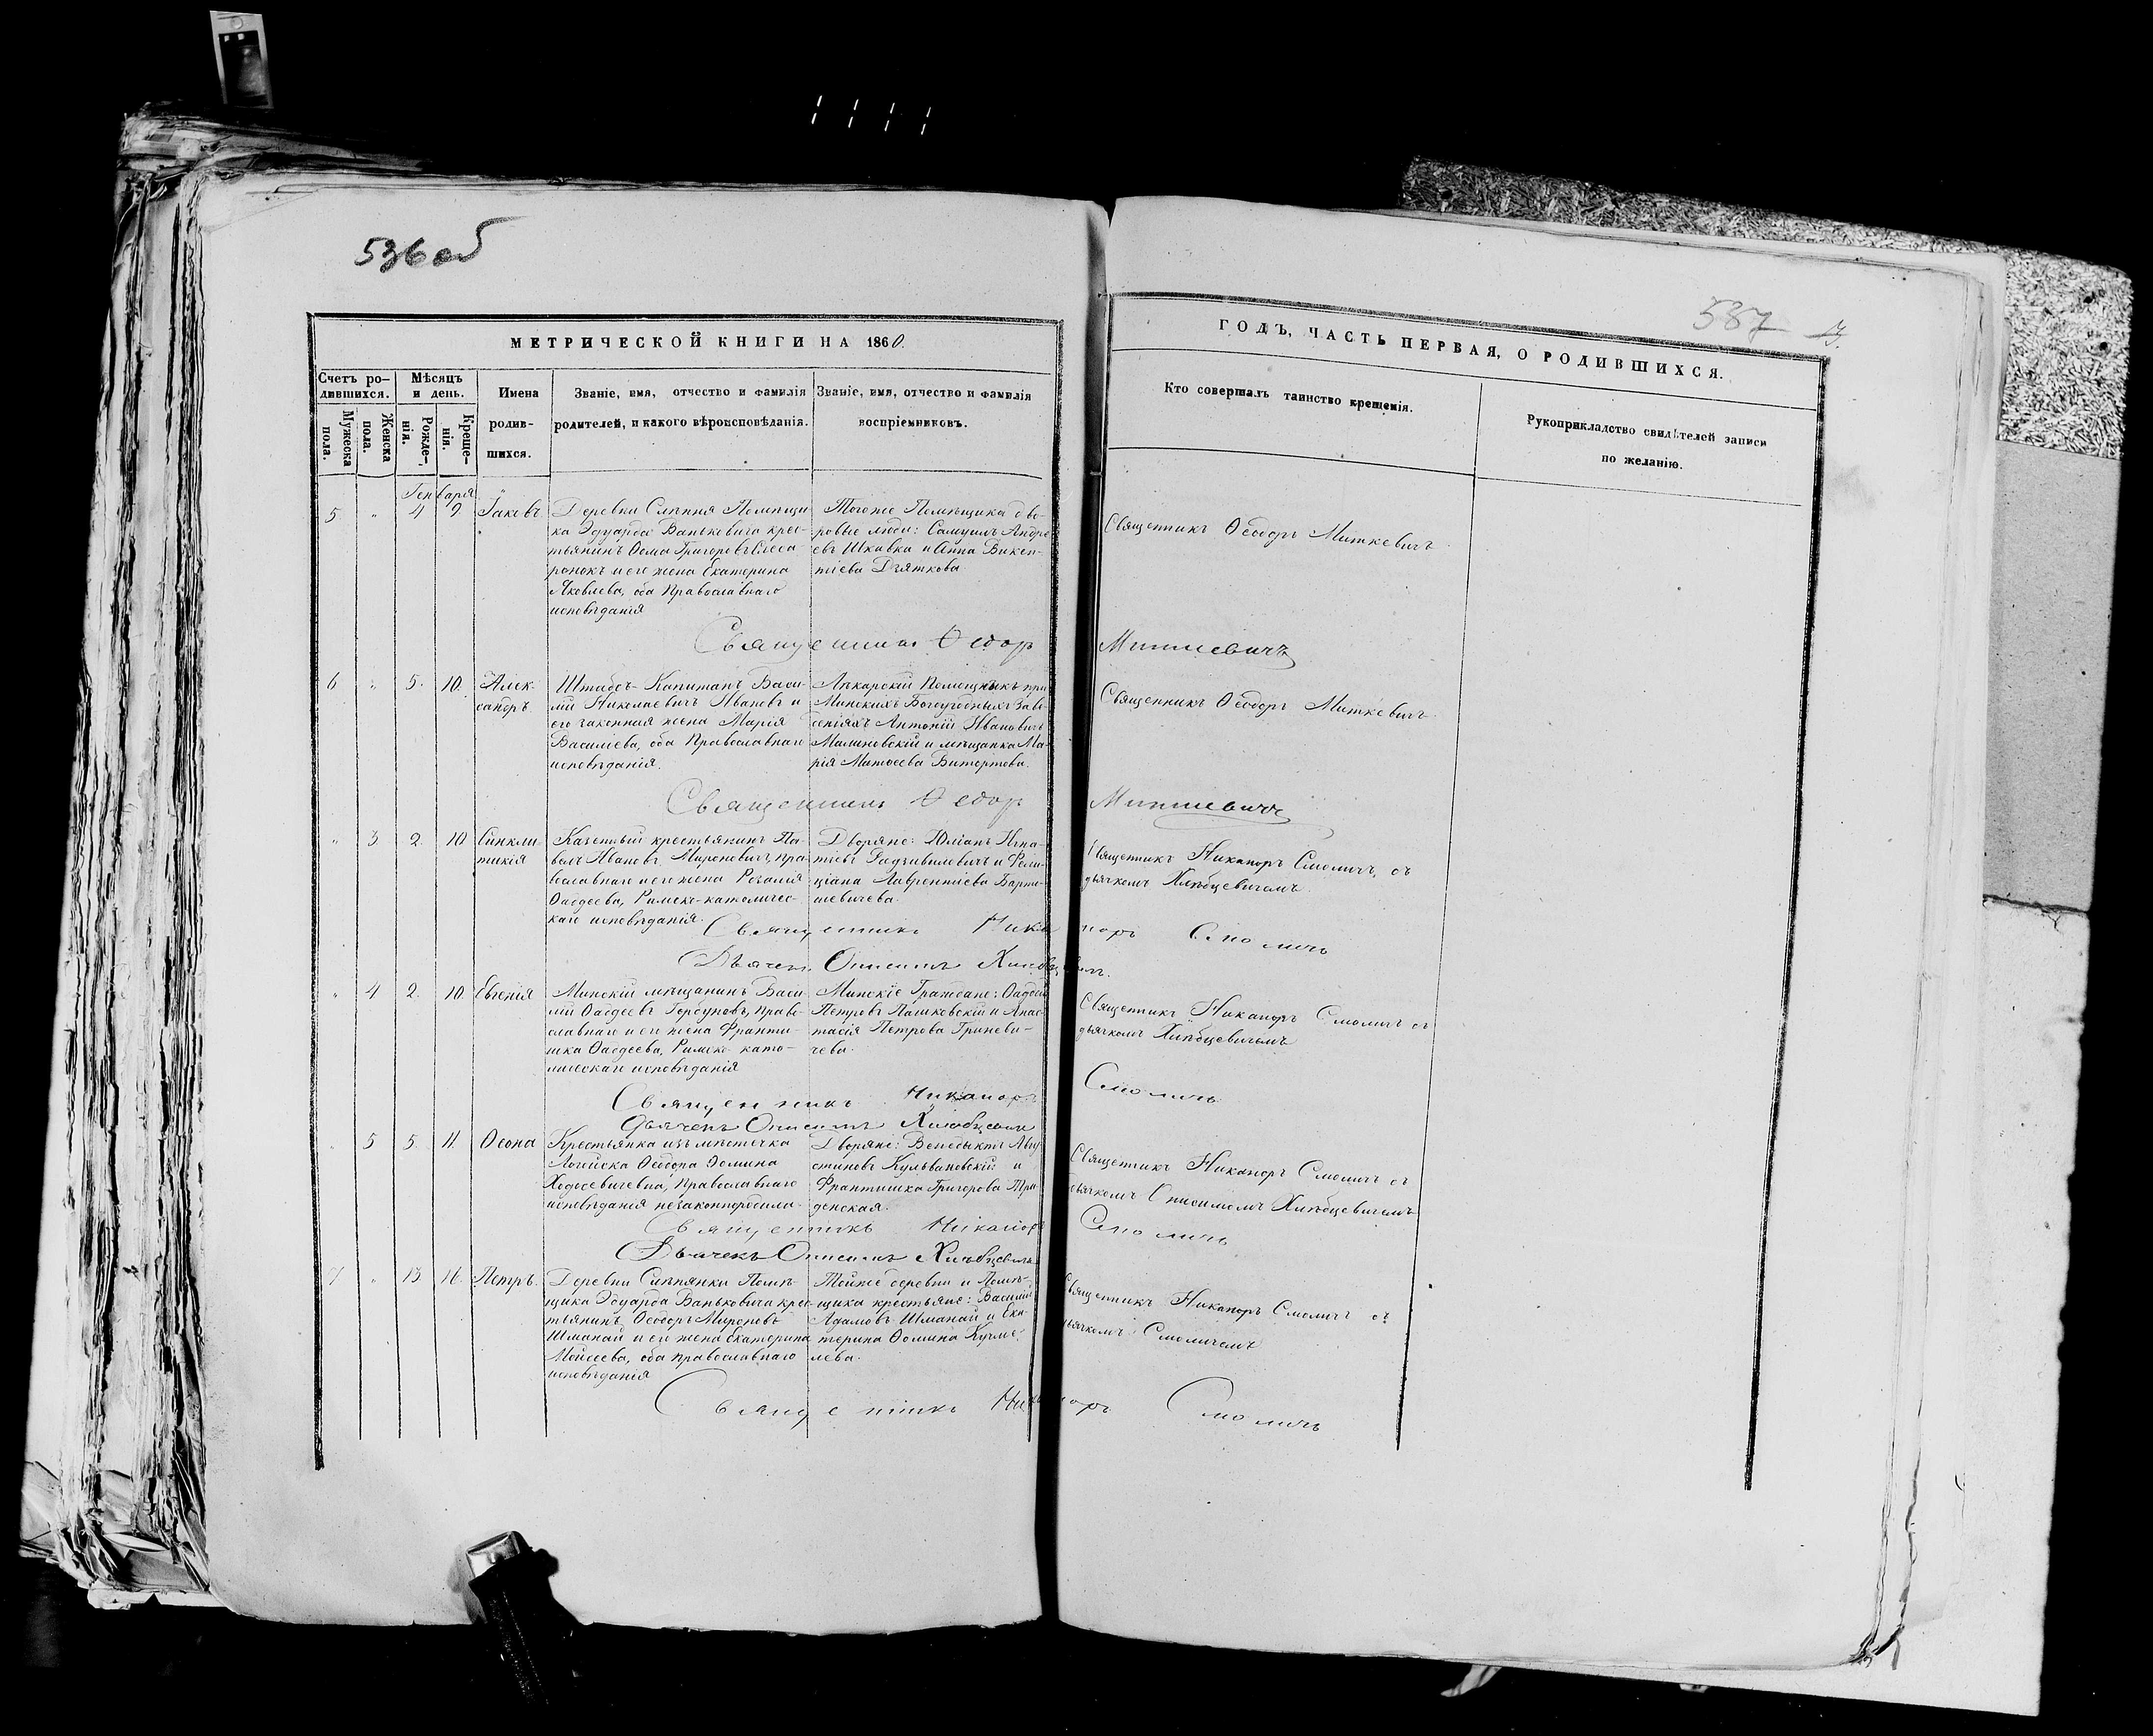 536 об
587
МЕТРИЧЕСКОЙ КНИГИ НА 1860.
ГОДЪ, ЧАСТЬ ПЕРВАЯ, О РОДИВШИХСЯ.
Счетъ ро-
дившихся.
Мужеска
пола.
Женска
пола.
Мѣсяцъ
и день.
Рожде-
нія.
Креще-
нія.
Имена
родив-
шихся.
Званіе, имя, отчество и фамилія
родителей, и какого вѣроисповѣданія.
Званіе, имя, отчество и фамилія
воспріемниковъ.
Кто совершалъ таинство крещенія.
Рукоприкладство свидѣтелей записи
по желанію.
Генваря
5 " 4 9. Іаковъ.
Деревни Слѣпня Помѣщи-
ка Эдуарда Ваньковича крес-
тьянинъ Ѳома Григоровъ
и его жена Екатерина
Яковлева, оба Православнаго
исповѣданія
Тогоже Помѣщика дво-
ровые люди: Самуилъ Андре
евъ Шкавка и Анна Викен-
тіева Дзяткова.
Священникъ Ѳеодоръ Миткевичъ
Священник Ѳедор Миткевичъ
6 " 5. 10. Алек-
сандръ
Штабсъ-Капитанъ Васи-
лій Николаевичъ Ивановъ и
его законная жена Марія
Василіева, оба Православнаго
исповѣданія.
Лѣкарскій Помощникъ при
Минскихъ Богоугодныхъ Заве
деніяхъ Антоній Ивановичъ
Малиновскій и мѣщанка Ма
рія Матѳеева Витортова.
Священникъ Ѳеодоръ Миткевичъ
Священникъ Ѳедор Миткевичъ
" 3 2. 10 Синкли-
тикія
Казенный крестьянинъ Па-
велъ Ивановъ Мироновичъ, пра-
вославнаго и его жена Розалія
Ѳадеева, Римско-католичес-
каго исповѣданія.
Дворяне: Юліанъ Игна-
тіевъ Радзивиловичъ и Фели-
ціана Лаврентіева Барти-
шевичева.
Священникъ Никаноръ Смоличъ, съ
дьячкомъ Хлѣбцевичемъ.
Священникъ Никаноръ Смоличъ
Дьячекъ Онисимъ Хлебцевичъ.
" 4 2. 10. Евгенія
Минскій мѣщанинъ Васи-
лій Ѳадеевъ Горбуновъ, право-
славнаго и его жена Франти-
шка Ѳадеева, Римско като-
лическаго исповѣданія
Минскіе Граждане: Ѳадей
Петровъ Пашковскій и Анас-
тасія Петрова Гриневи-
чева.
Священникъ Никаноръ Смоличъ съ
дьячкомъ Хлѣбцевичемъ
Священникъ Никаноръ Смоличъ
Дьячекъ Онисимъ Хлебцевичъ
" 5 5. 11. Ѳеона
Крестьянка изъ мѣстечка
Логойска Ѳеодора Ѳомина
Ходосевичевна, Православнаго
исповѣданія незаконнородила.
Дворяне: Венедыктъ Авгу
стиновъ Кульвановскій и
Франтишка Григорова
Священникъ Никаноръ Смоличъ съ
дьячкомъ Онисимомъ Хлѣбцевичемъ
Священникъ Никаноръ Смоличъ
Дьячекъ Онисимъ Хлебцевичъ
7 " 13 16. Петръ.
Деревни Слѣпянки Помѣ-
щика Эдуарда Ваньковича крес-
тьянинъ Ѳеодоръ Мироновъ
Шманай и его жена Екатерина
Моисеева, оба православнаго
исповѣданія
Тойже деревни и Помѣ-
щика крестьяне: Василій
Адамовъ Шманай и Ека-
терина Ѳомина Кучме-
лева.
Священникъ Никаноръ Смоличъ съ
дьячкомъ Смоличемъ
Священникъ Никаноръ Смоличъ